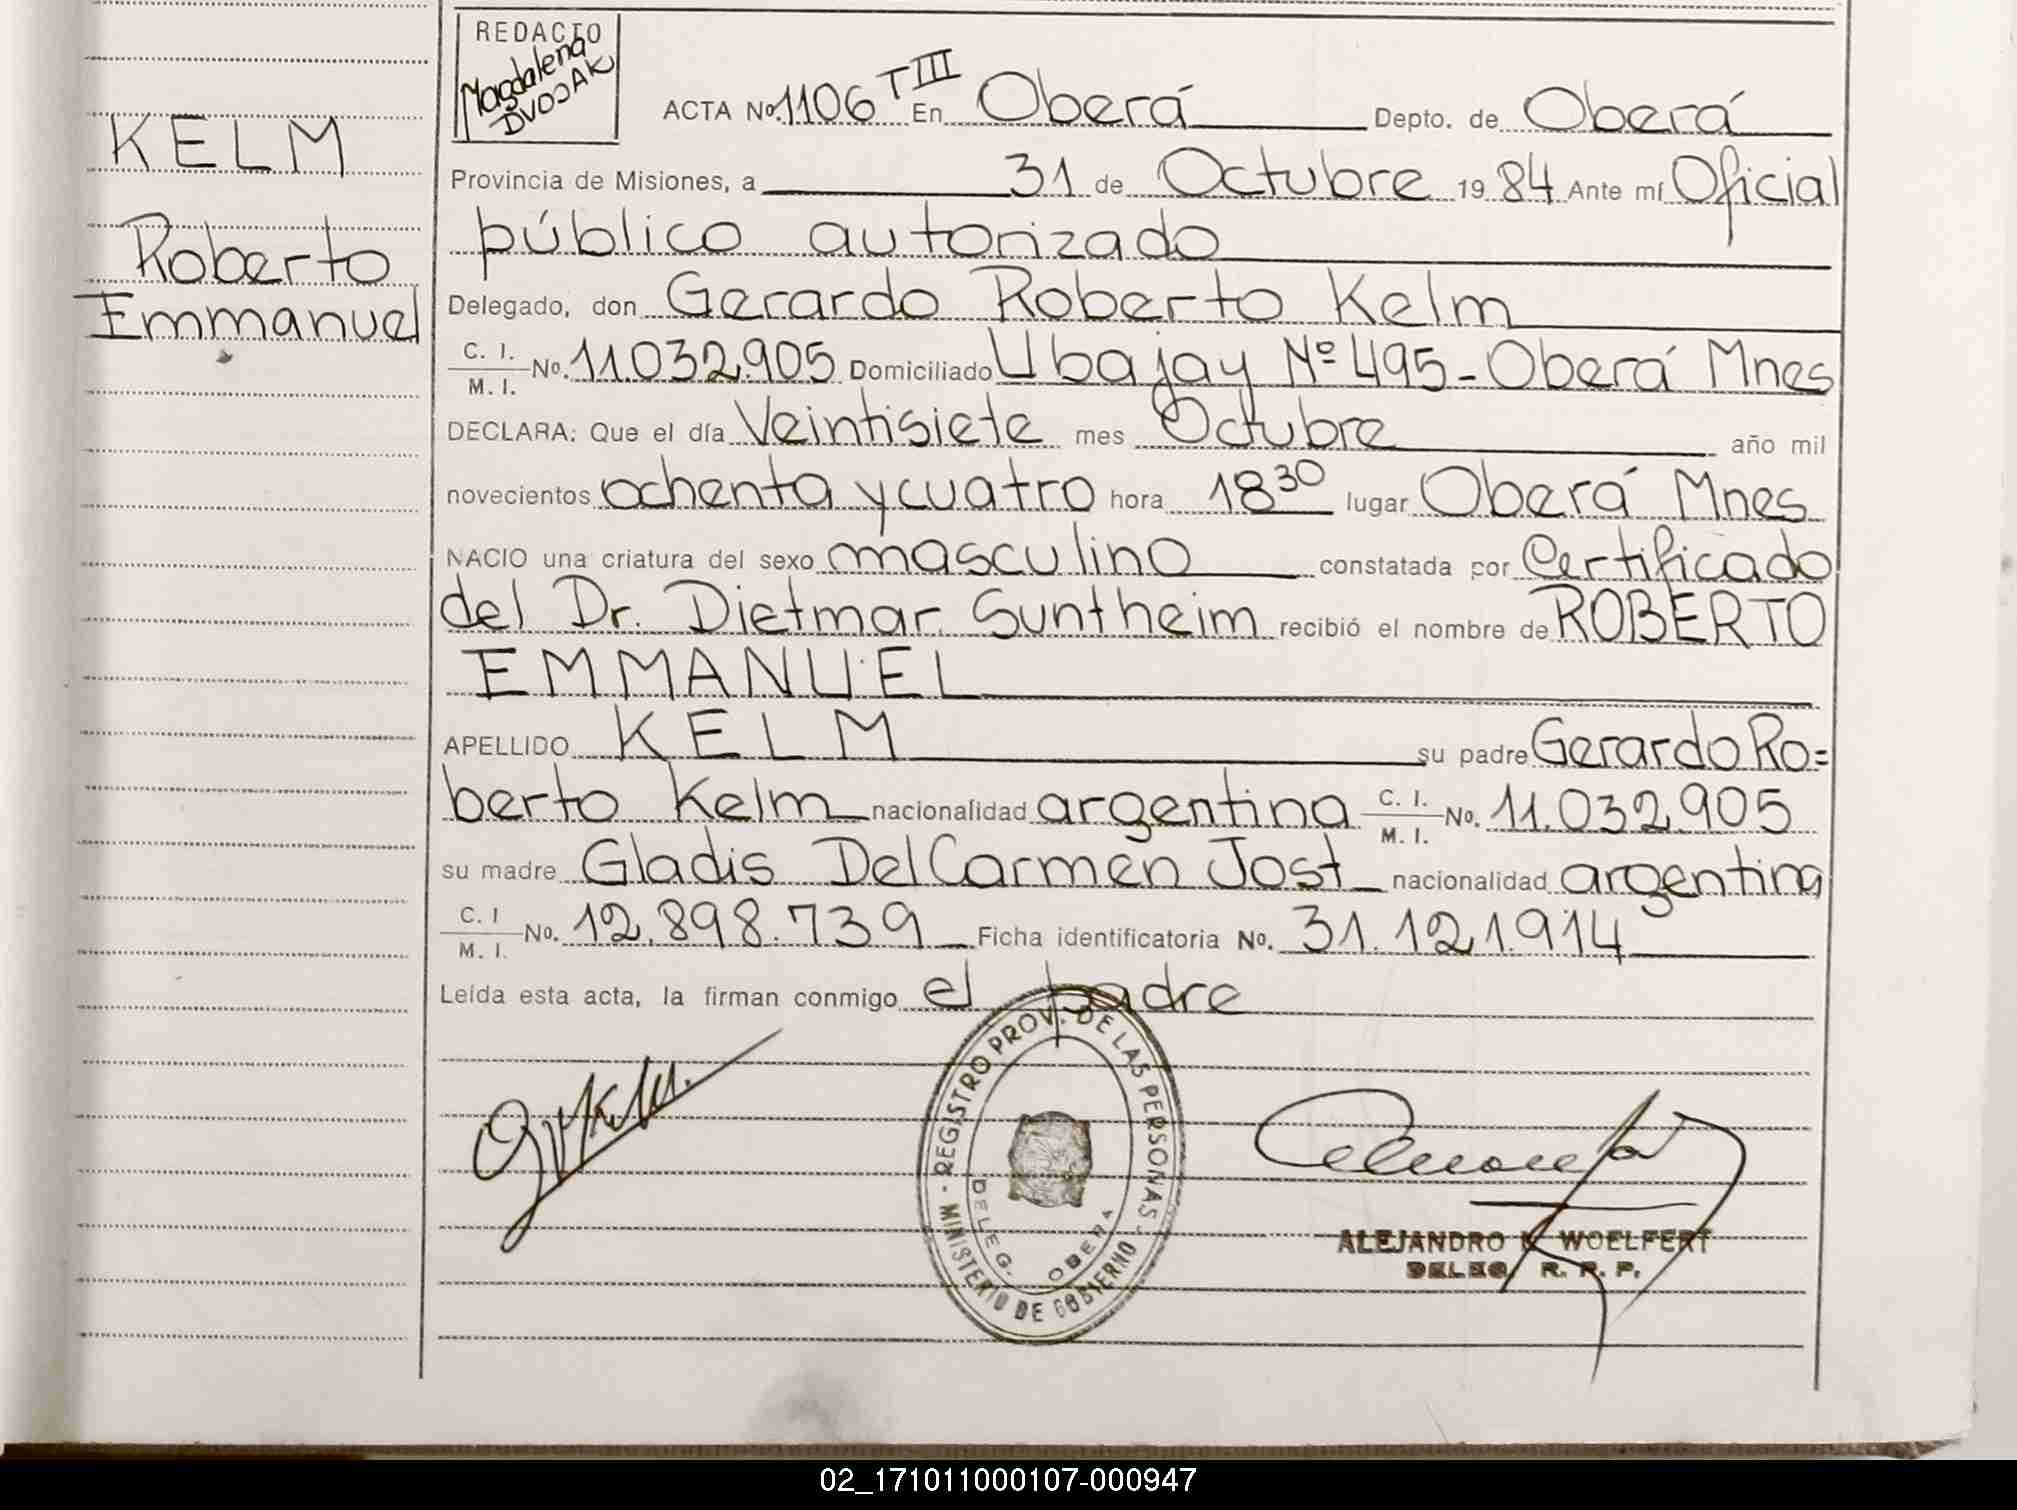 REDACTO
Magdalena
DVOJAK
KELM
Roberto
Emmanuel
ACTA No. 1106 TIII En Oberá Depto. de Oberá
Provincia de Misiones, a 31 de Octubre 19 84 Ante mí Oficial
público autorizado
Delegado, don Gerardo Roberto Kelm
C. I. / M. I. No. 11.032.905 Domiciliado Ubajay Nº 495 - Oberá Mnes
DECLARA: Que el día Veintisiete mes Octubre año mil
novecientos ochenta y cuatro hora 18 30 lugar Oberá Mnes
NACIO una criatura del sexo masculino constatada por Certificado
del Dr. Dietmar Suntheim recibió el nombre de ROBERTO
EMMANUEL
APELLIDO KELM su padre Gerardo Ro=
berto Kelm nacionalidad argentina C. I. / M. I. No. 11.032.905
su madre Gladis Del Carmen Jost nacionalidad argentina
C. I / M. I. No. 12.898.739 Ficha identificatoria No. 31.121.914
Leída esta acta, la firman conmigo el padre
REGISTRO PROV. DE LAS PERSONAS - MINISTERIO DE GOBIERNO -
DELEG. OBERA
ALEJANDRO WOELFERT
DELEG. R. P. P.
02_171011000107-000947